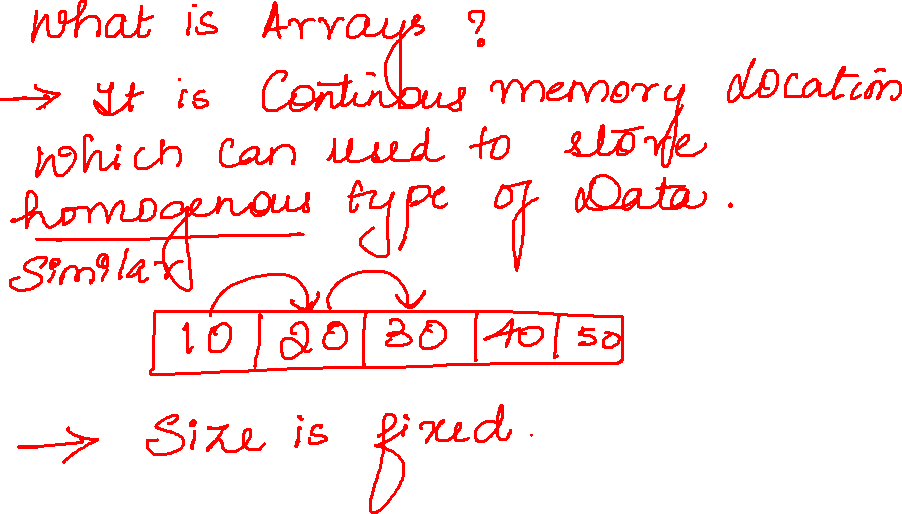 What is Arrays ?
→ It is Continous memory location
which can used to store
homogenous type of Data .
Similar
10 20 30 40 50
→ Size is fixed .